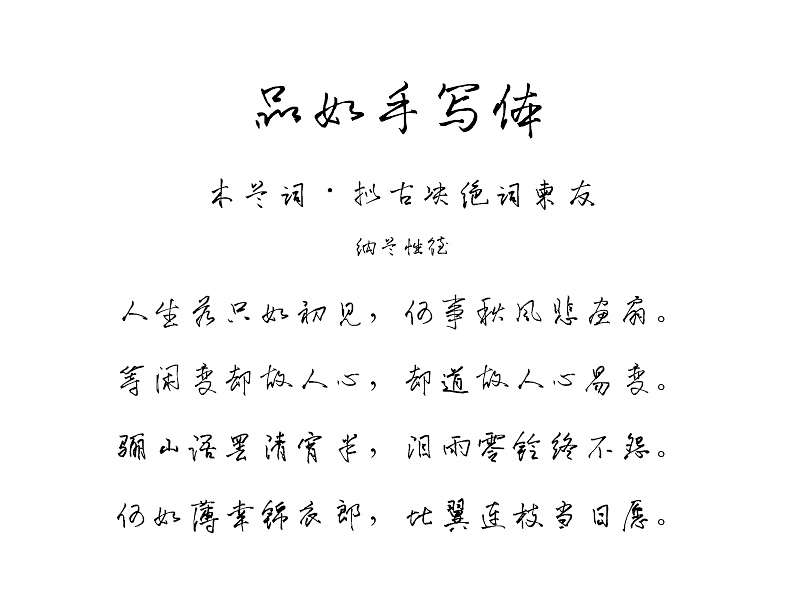 品如手写体
木兰词·拟古决绝词柬友
纳兰性德
人生若只如初见，何事秋风悲画扇。
等闲变却故人心，却道故人心易变。
骊山语罢清宵半，泪雨零铃终不怨。
何如薄幸锦衣郎，比翼连枝当日愿。